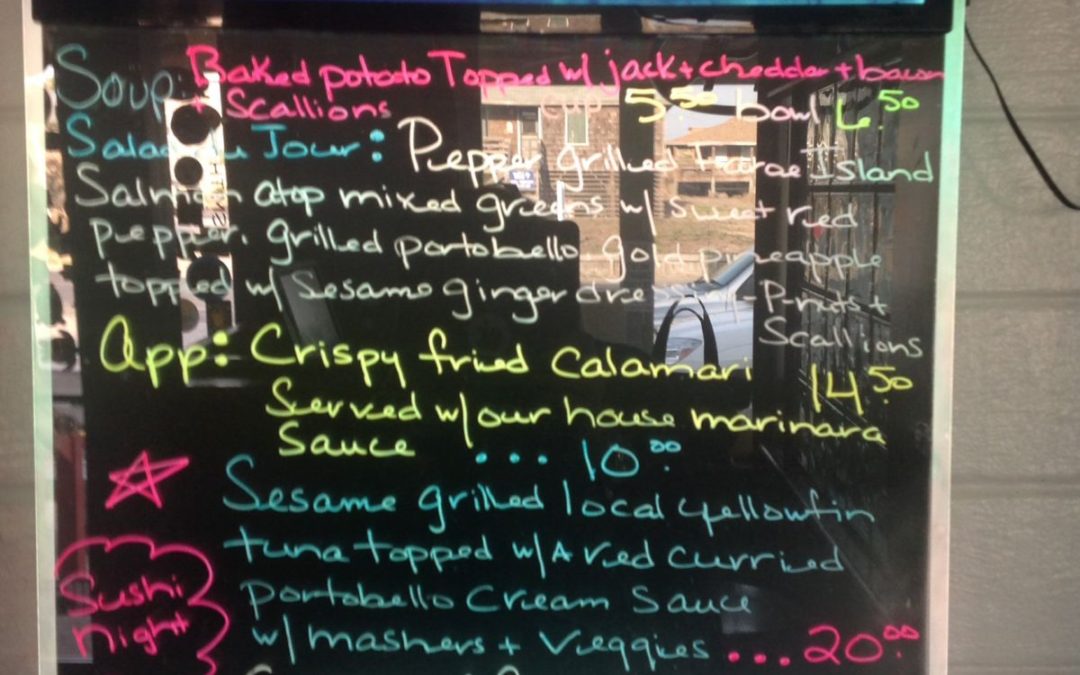 Soup: Baked potato Topped w/ jack + cheddar + bacon
+ Scallions cup 5.50 bowl 6.50
Salad du Jour: Pepper grilled Faroe Island
Salmon atop mixed greens w/ sweet red
pepper, grilled portobello, gold pineapple
topped w/ Sesame ginger dressing - P-nuts +
Scallions
14.50
App: Crispy fried Calamari
Served w/ our house marinara
Sauce ... 10.00
Sesame grilled local yellowfin
tuna topped w/ A red curried
portobello Cream Sauce
w/ mashers + Veggies ... 20.00
Sushi
night